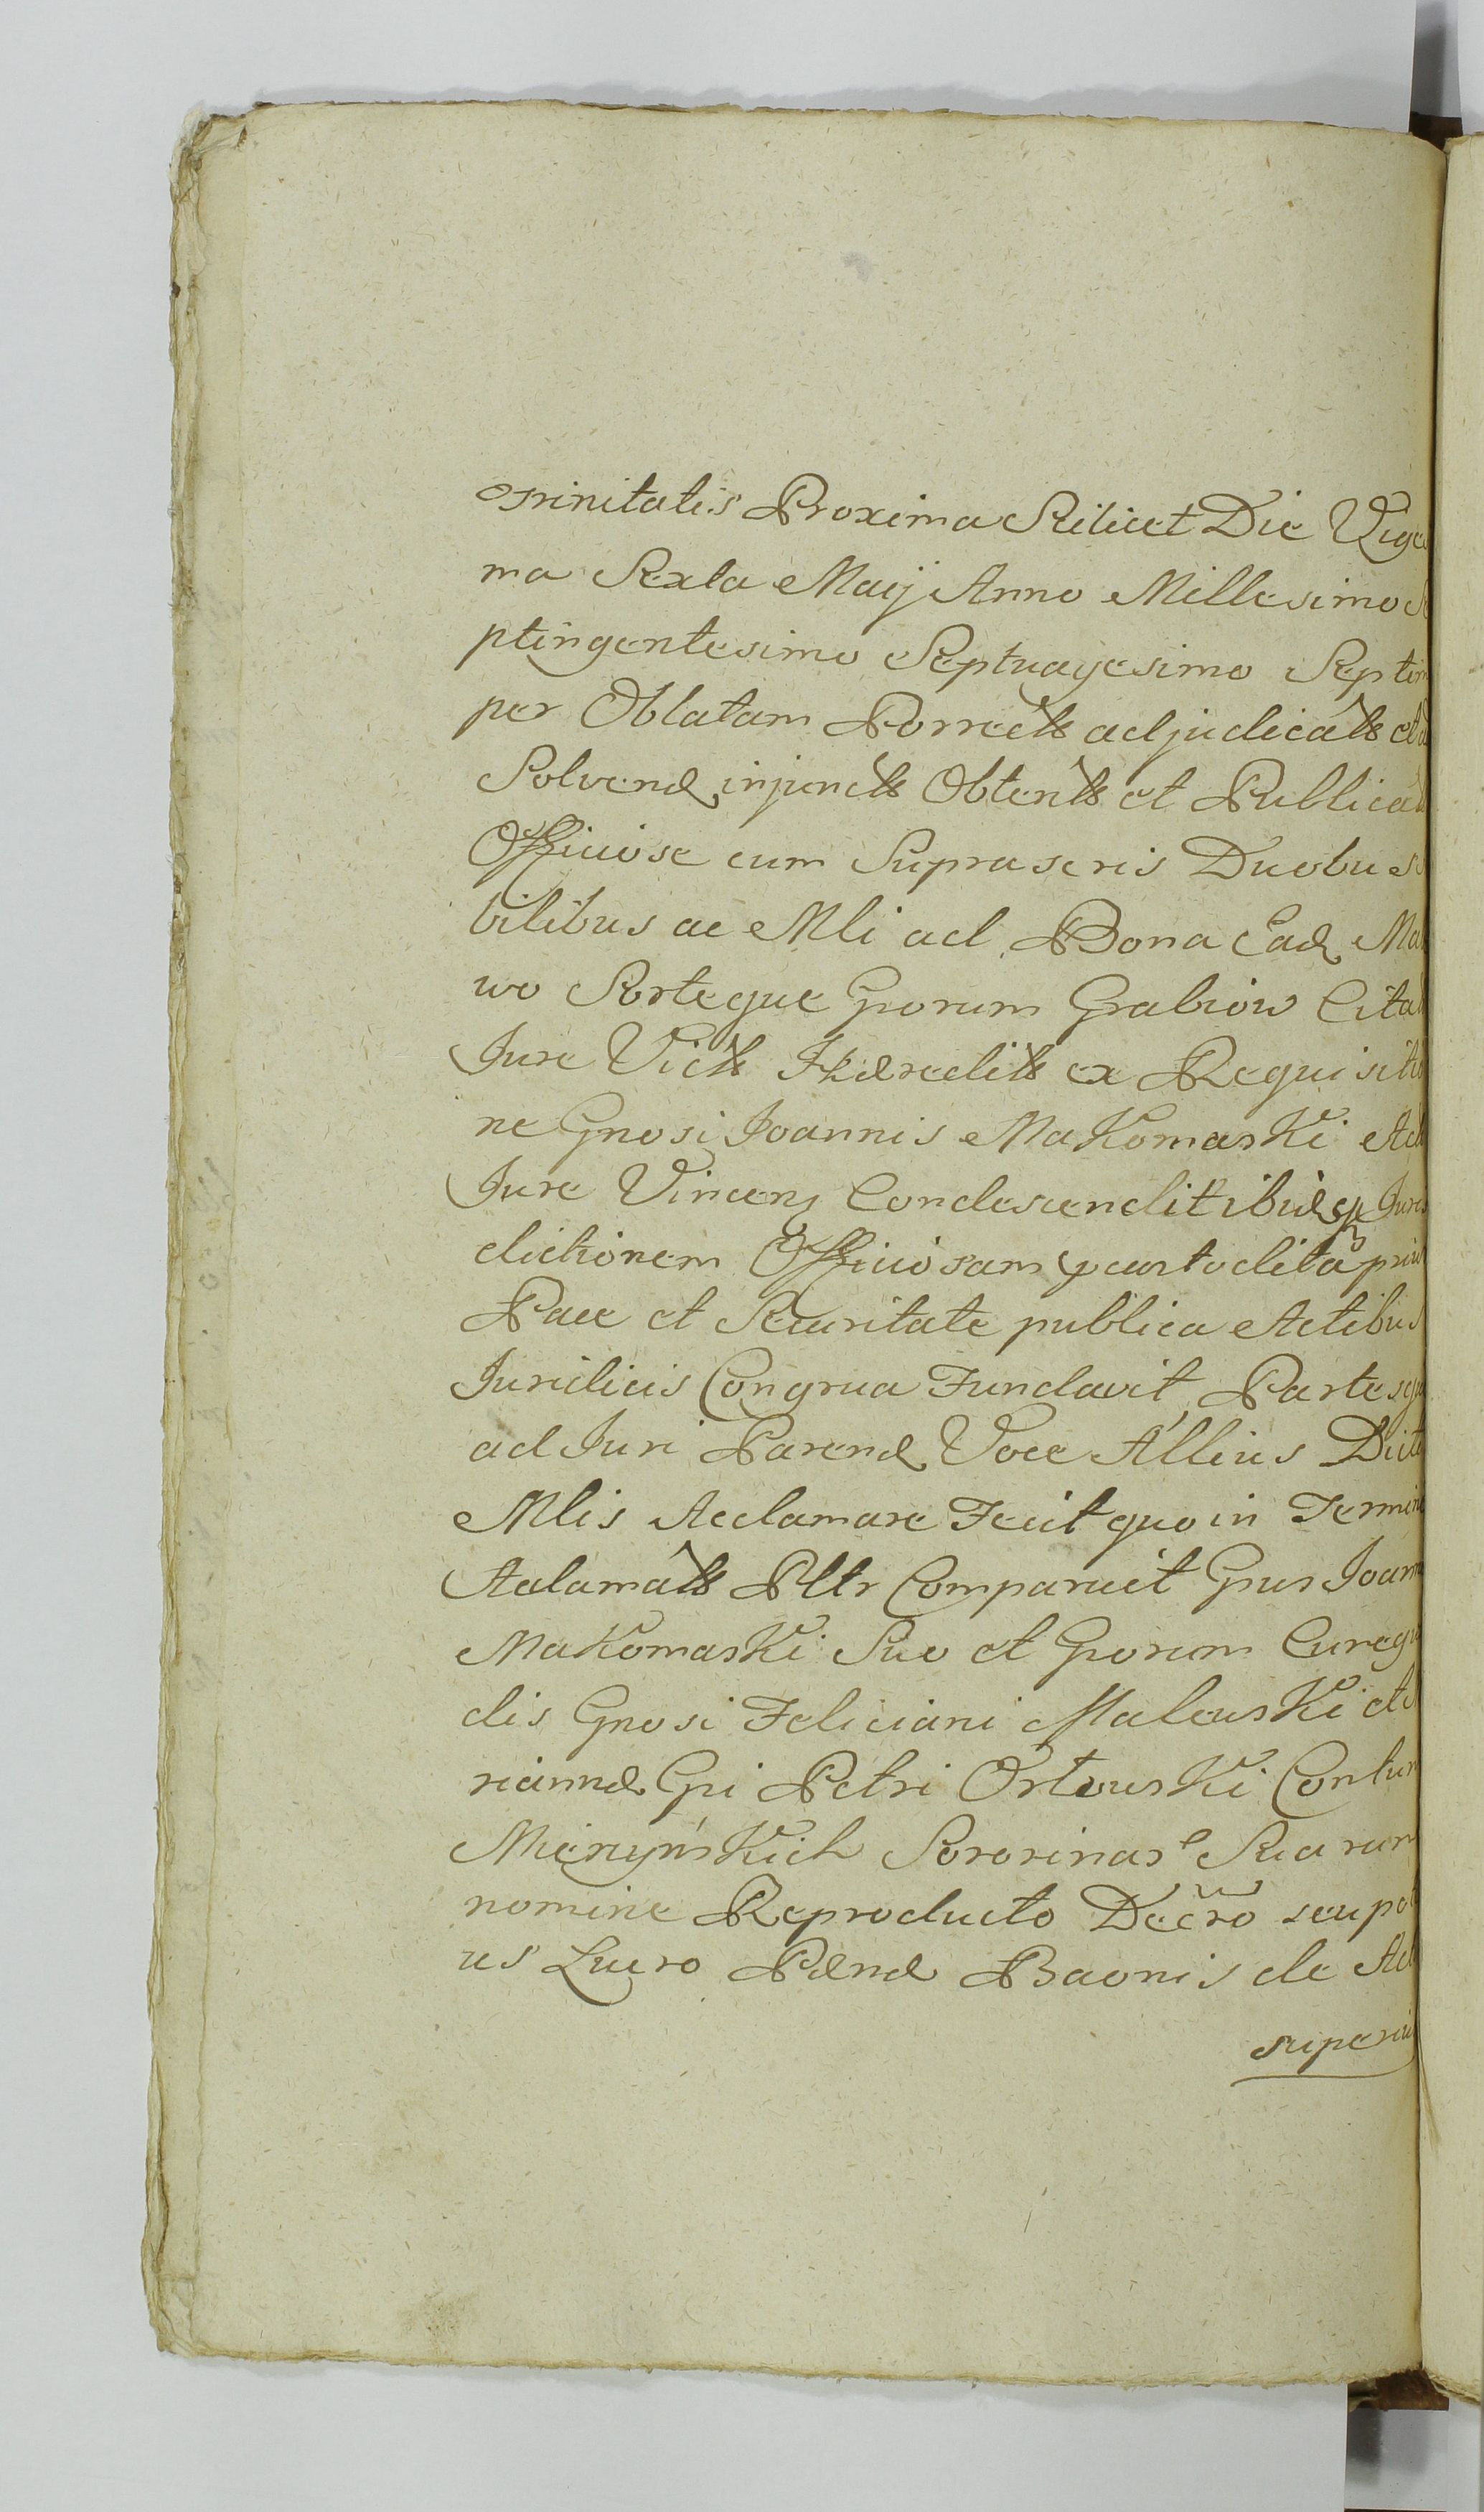 Trinitatis Proxima Scilicet Die Vige
ma Sexta Maij Anno Millesimo Se
ptingentesimo Septuagesimo Septim
per Oblatam Porrectt adjudicatt et
Solvend injunctt Obtentt et Publicat
Officiose cum Suprascris Duobus
bilibus ac Mli ad Bona Ead Ma
wo Sorteque Gnorum Grabiow Citat
Jure Victt Hæreditt ex Requisitio
ne Gnosi Joannis Makomaski Act
Jure Vincens Condescendit ibidq Juris
dictionem Officiosam custodita prius
Pace et Securitate publica Actibus
Juridicis Congrua Fundavit Partesq
ad Juri Parend Voce Allius Dicte
Mlis Acclamare Fecit quo in Termin
Acclamatt Pltr Comparuit Gnus Joann
Makomaski Suo et Gnorum
dis Gnosi Feliciani Malewski et
riannæ Gni Petri Ortowski Contur
Mierzyńskich Sororinas Suarum
nomine Reproducto Decro seu pot
us Lucro Pænæ Baonis de Act
superiu